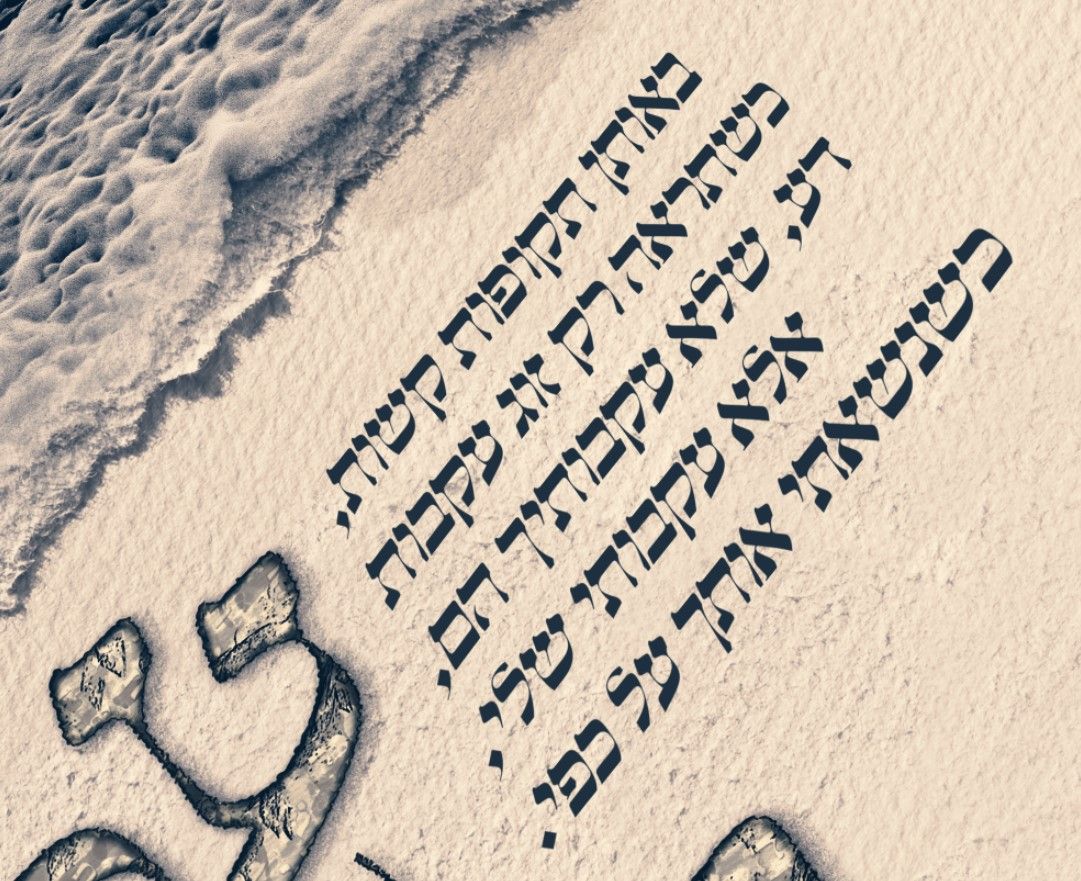 באותן תקופות קשות,
כשתראה רק זוג עקבות
דע, שלא עקבותיך הם,
אלא עקבותי שלי,
כשנשאתי אותך על כפי.